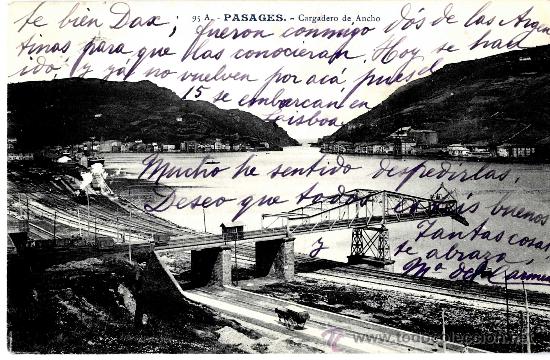 te bien Dax; fueron conmigo dós de las Argen
95 A. - PASAGES. - Cargadero de Ancho
tinas para que las conocieran. Hoy se han
ido; y ya no vuelven por acá pues el
15 se embarcan en
Lisboa.
Mucho he sentido despedirlas,
Deseo que todos esteis buenos
y tantas cosas
te abraza
Mª del Carmen
todocoleccion.net